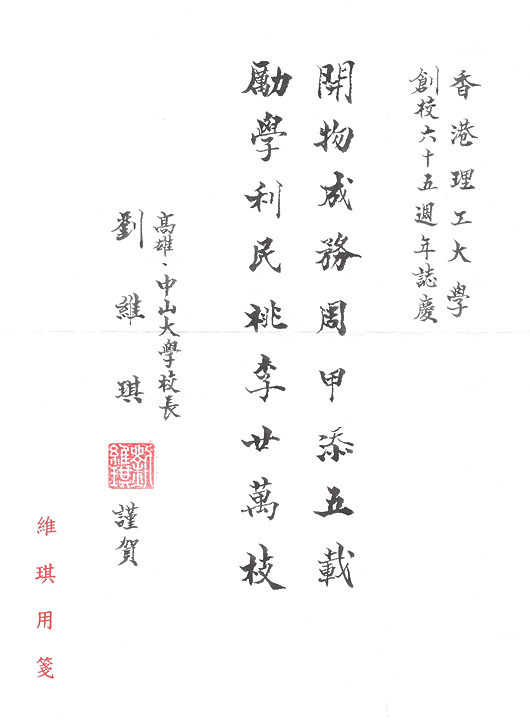 香港理工大學
創校六十五週年誌慶
開物成務周甲添五載
勵學利民桃李廿萬枝
高雄·中山大學校長
劉維琪
劉維琪
謹賀
維琪用箋